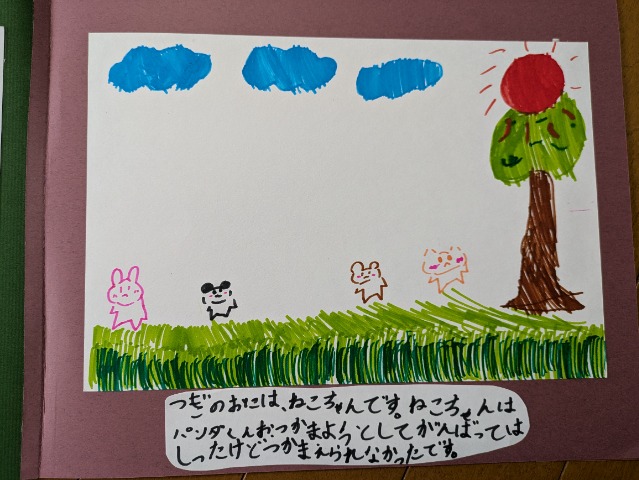 つぎのおには、ねこちゃんです。ねこちゃんは
パンダくんおつかまようとしてがんばっては
しったけどつかまえられなかったです。